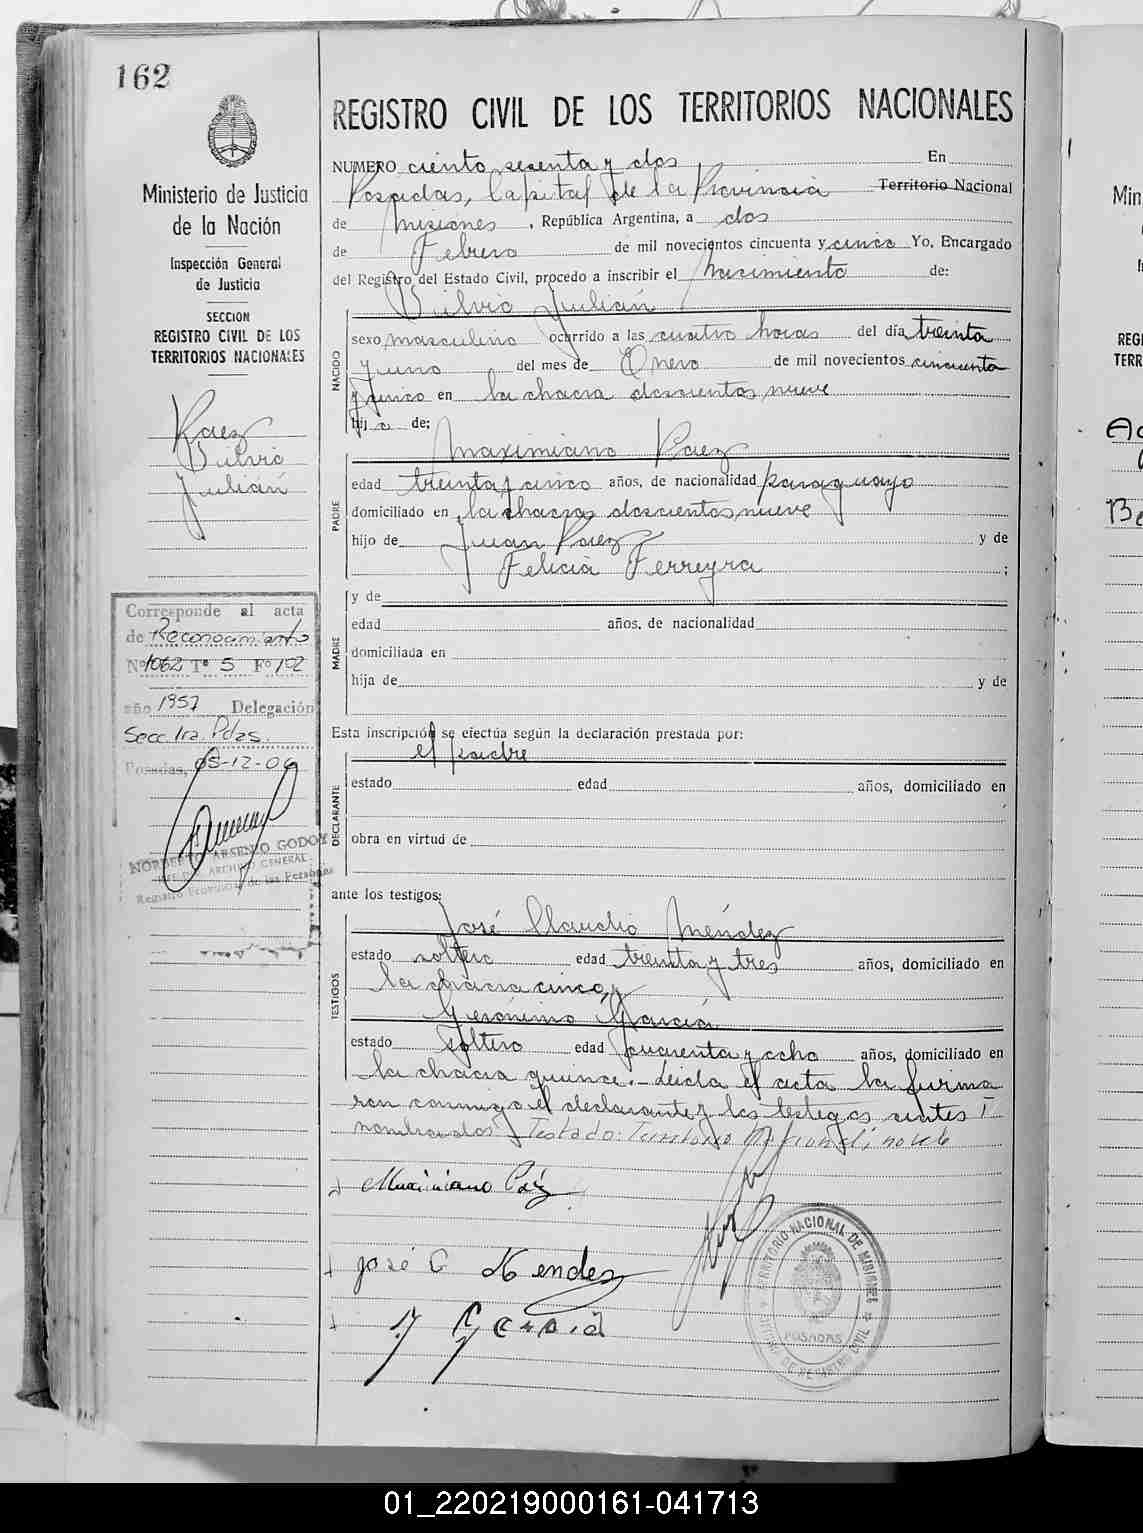 162
Ministerio de Justicia
de la Nación
Inspección General
de Justicia
SECCION
REGISTRO CIVIL DE LOS
TERRITORIOS NACIONALES
Paez
Silvio
Julián
Corresponde al acta
de Reconocimiento
Nº 1062 Tº 5 Fº 192
año 1957 Delegación
Secc. 1ra. Pdas.
Posadas, 05-12-06
NORBERTO ARSENIO GODOY
JEFE DPTO. ARCHIVO GENERAL
Registro Provincial de las Personas
REGISTRO CIVIL DE LOS TERRITORIOS NACIONALES
NUMERO ciento sesenta y dos En
Posadas, Capital de la Provincia Territorio Nacional
de Misiones, República Argentina, a dos
de Febrero de mil novecientos cincuenta y cinco Yo, Encargado
del Registro del Estado Civil, procedo a inscribir el Nacimiento de:
Silvio Julián
NACIDO
sexo masculino ocurrido a las cuatro horas del día treinta
y uno del mes de Enero de mil novecientos cincuenta
y cinco en la chacra doscientos nueve
hijo de:
PADRE
Maximiano Paez
edad treinta y cinco años, de nacionalidad paraguayo
domiciliado en la chacra doscientos nueve
hijo de Juan Paez y de
Felicia Ferreyra ;
MADRE
y de
edad años, de nacionalidad
domiciliada en
hija de y de
Esta inscripción se efectúa según la declaración prestada por:
el padre
DECLARANTE
estado edad años, domiciliado en
obra en virtud de
ante los testigos:
TESTIGOS
José Claudio Méndez
estado soltero edad treinta y tres años, domiciliado en
la chacra cinco y
Gerónimo García
estado soltero edad cuarenta y ocho años, domiciliado en
la chacra quince.- Leida el acta la firma
ron conmigo el declarante y los testigos antes
nombrados. Testado: Territorio Nacional; no vale
Maximiano Páez
José C Mendez
POSADAS